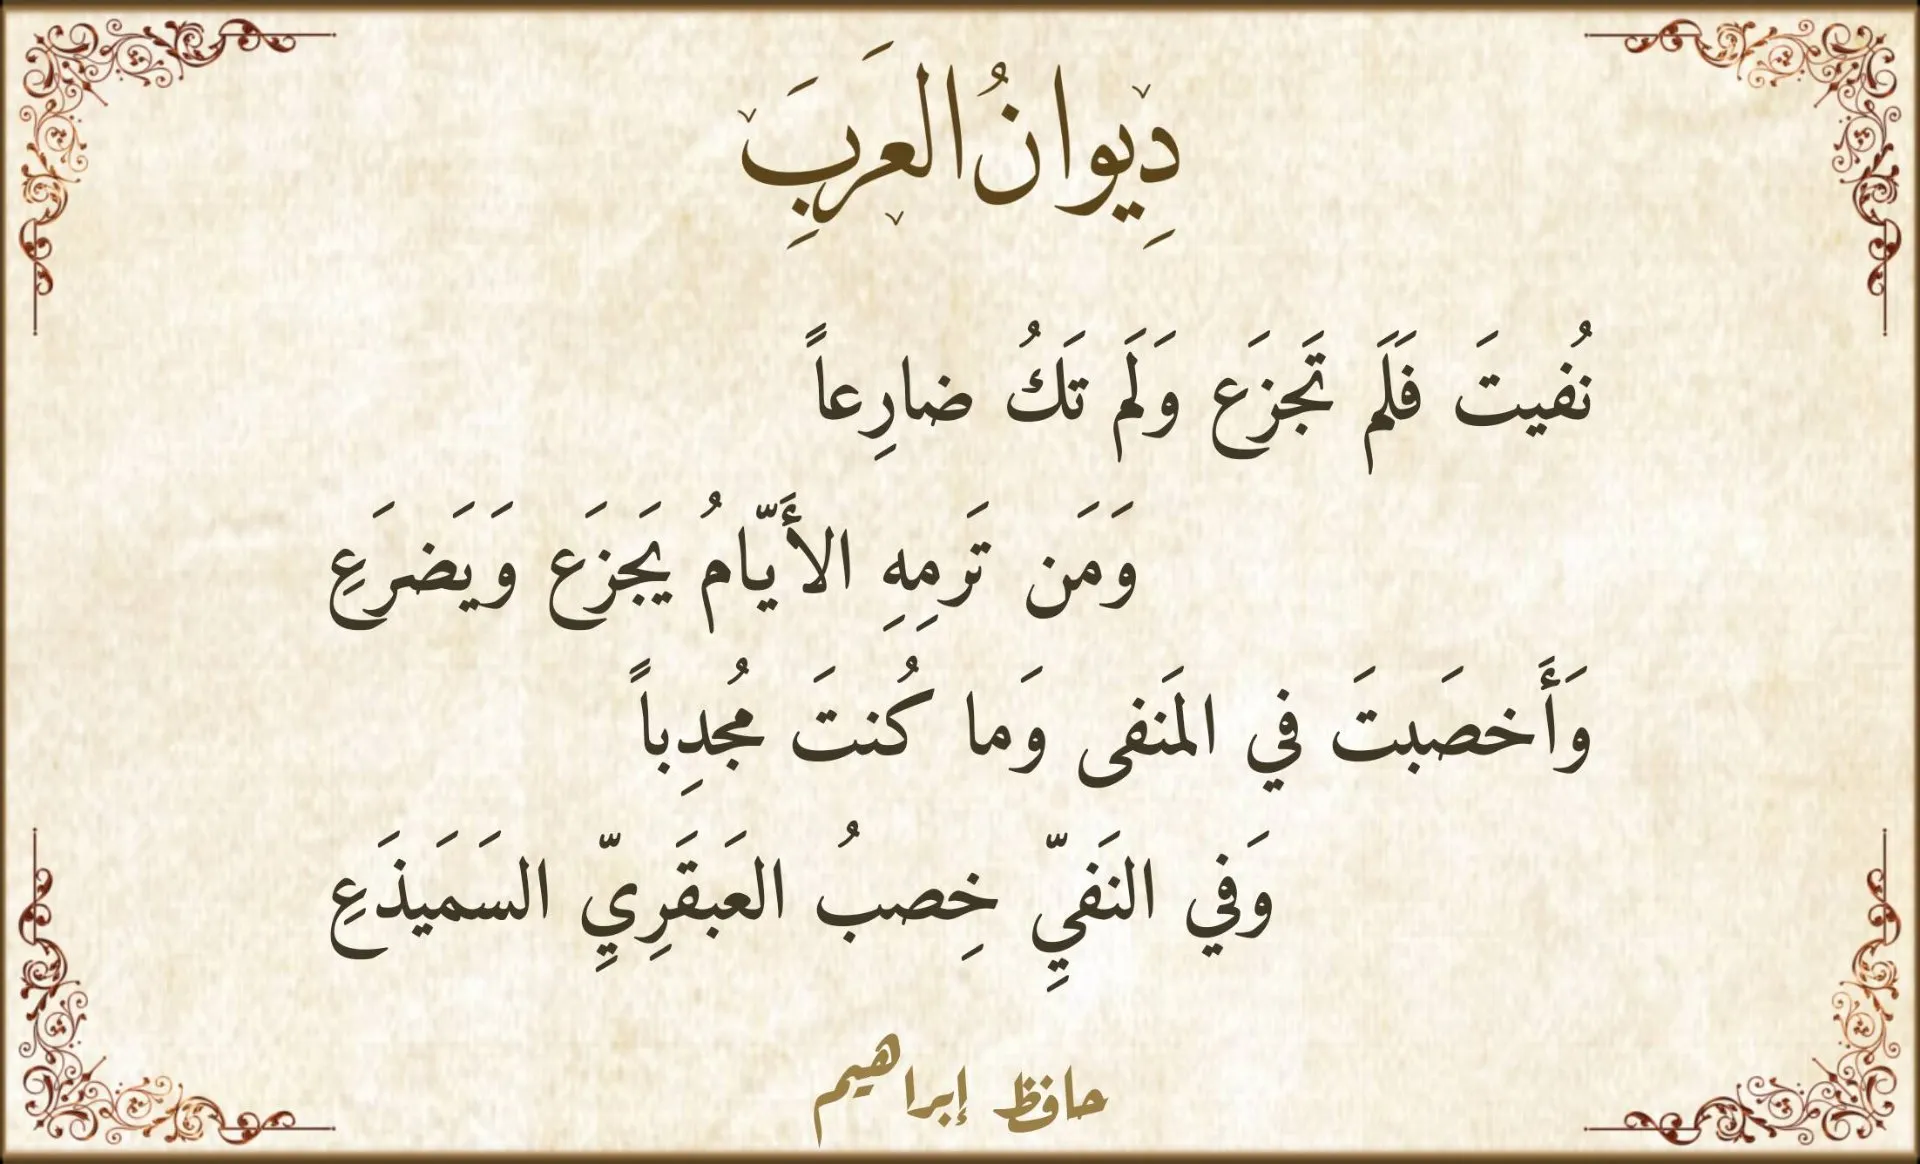 دِيوانُ العَرَبَِ
نُفيتَ فَلَم تَجزَع وَلَم تَكُ ضارِعاً
وَمَن تَرمِهِ الأَيّامُ يَجزَع وَيَضرَعِ
وَأَخصَبتَ في المَنفى وَما كُنتَ مُجدِباً
وَفي النَفيِّ خِصبُ العَبقَرِيِّ السَمَيذَعِ
حافظ إبراهيم